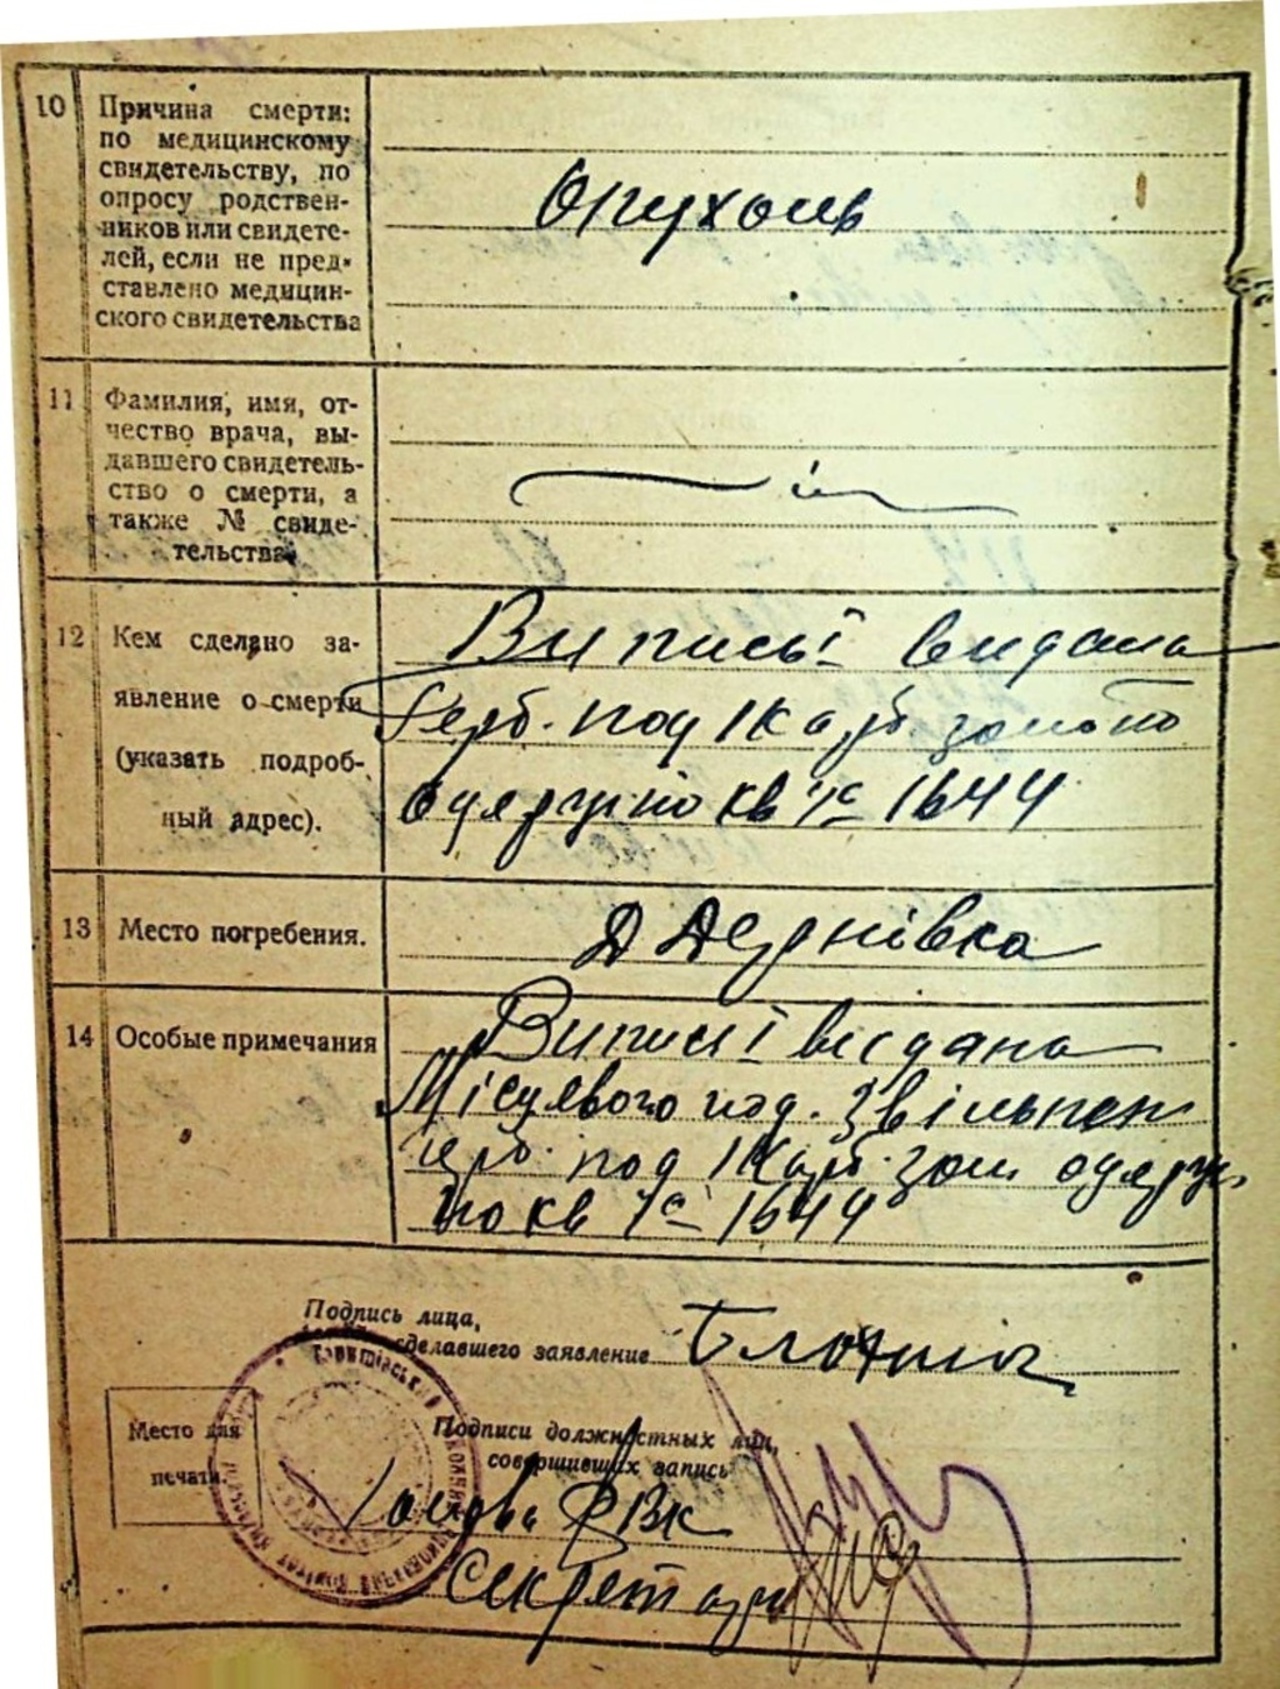 10 Причина смерти:
по медицинскому
свидетельству, по
опросу родствен-
ников или свидете-
лей, если не пред-
ставлено медицин-
ского свидетельства
Опухоль
11 Фамилия, имя, от-
чество врача, вы-
давшего свидетель-
ство о смерти, а
также № свиде-
тельства
12 Кем сделано за-
явление о смерти
(указать подроб-
ный адрес).
Виписі видана
Герб. под 1 Карб
кв 1644
13 Место погребения.
Д Дернівка
14 Особые примечания
Виписі видана
Місцевого под. Звільнен
герб. под 1 Карб.
по кв 1644
Подпись лица,
сделавшего заявление
Место для
печати.
Подписи должностных лиц,
совершивших запись
Голова РВК
Секретарь